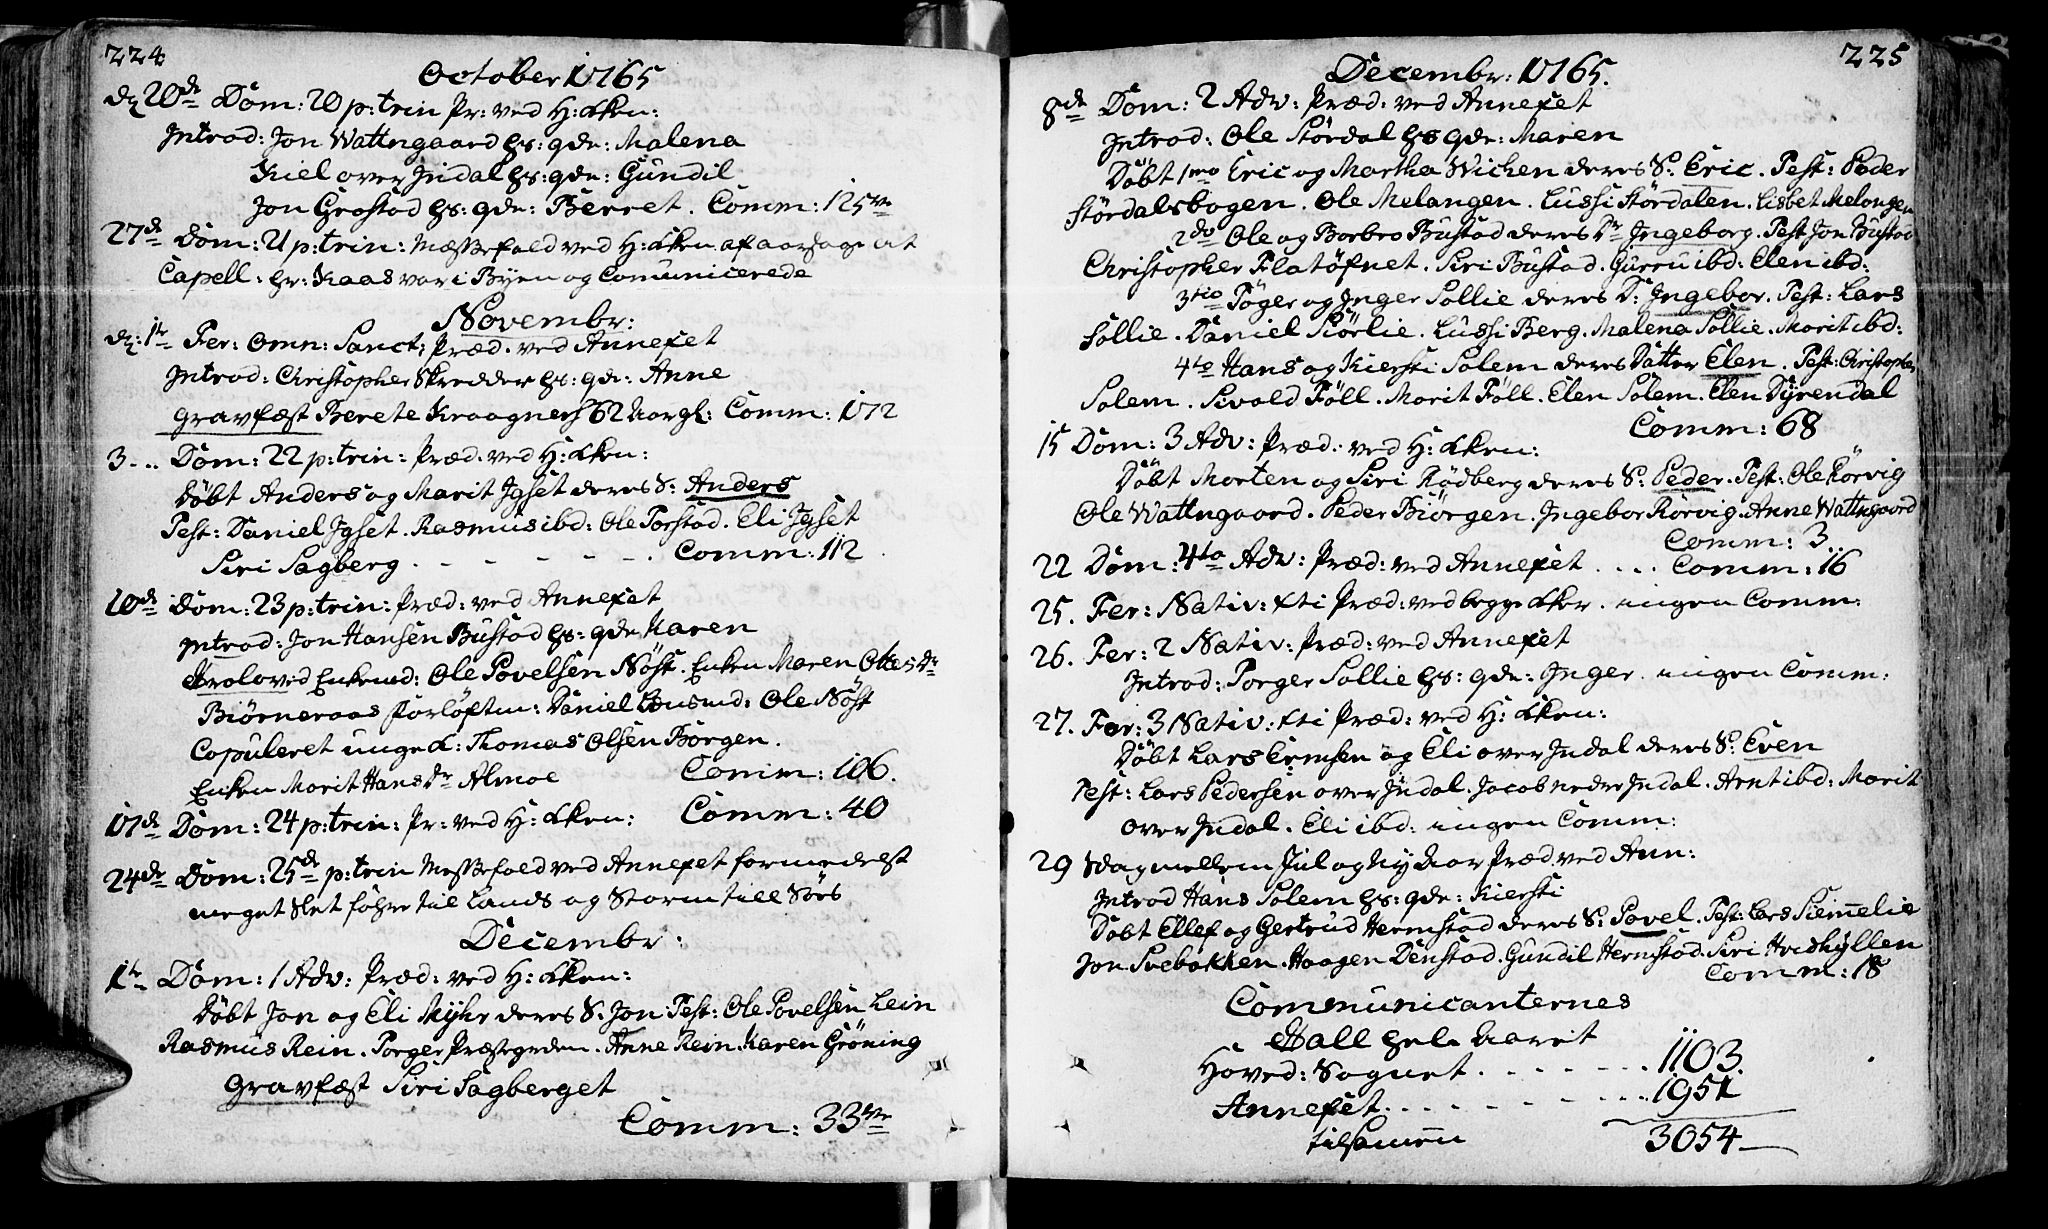 224
October 1765
d: 20de Dom: 20 p: trin Pr: ved H: Kken:
Introd: Jon Wattngaard hs: qde: Malena
Kiel over Indal hs: qde: Gundil
Jon Grostad hs: qde: Berret. Comm: 125ve
27de Dom: 21 p: trin: Mæssefald ved H: Kken af aarsage at
Capell: hr: Kaas var i Byen og Comunicerede
Novembr:
d: 1te Fer: Omn: Sanct: Præd: ved Annexet
Introd: Christopher Skredder hs: qde: Anne
Gravfæst Berete Kraagnes 62 Aargl: Comm: 172
3... Dom: 22 p: trin: Præd. ved H: Kken:
Döbt Anders og Marit Jgset deres S: Anders
Test: Daniel Jgset. Rasmus ibd: Ole Torstad. Eli Jgset
Siri Sagberg . - - - - . Comm: 112
10de Dom: 23 p: trin: Præd: ved Annexet
Introd: Jon Hansen Bustad hs: qde Karen
Trolovid Enkemd: Ole Povelsen Nöst. Enken Maren Olesdr
Biörneraas forlöftm: Daniel Huusmd: Ole Nöst
Copuleret unge K: Thomas Olsen Borgen.
Enken Marit Hansdr Almoe Comm: 106.
17de Dom: 24 p: trin: Pr: ved H: Kken: Comm: 40
24de Dom: 25de p: trin Messefald ved Annexet formedelst
meget Slet föhre til Lands og Storm till Söes
Decembr:
1te Dom: 1 Adv: Præd: ved H: Kken:
Döbt Jon og Eli Myhr deres S: Jon Test: Ole Povelsen Lein
Rasmus Rein. Torger Præstegrden. Anne Rein. Karen Gröning
Gravfæst Siri Sagberget
Comm: 33ve
225
Decembr: 1765.
8de Dom: 2 Adv: Præd: ved Annexet
Introd: Ole Stördal hs qde: Maren
Döbt 1mo Eric og Martha Wichen deres S: Eric. Test: Peder
Stördalsbogen. Ole Melangen. Lussi Stördalen. Lisbet Melangen
2do Ole og Borbro Bustad deres Dr Ingeborg. Test Jon Bustad
Christopher Flatösnet. Siri Bustad. Gurru ibd: Elen ibd:
3tio Töger og Inger Sollie deres D: Ingebor. Test: Lars
Sollie. Daniel Slörlie. Lussi Berg. Malena Sollie. Morit ibd:
4to Hans og Kiersti Solem deres Datter Elen. Test: Christopher
Solem. Sivald Föll. Morit Föll. Elen Solem. Elen Dyrendal
Comm: 68
15 Dom: 3 Adv: Præd: ved H: Kken:
Döbt Morten og Siri Rødberg deres S: Peder. Test: Ole Körvig
Ole Wattngaard. Peder Biörgen. Ingebor Körvig. Anne Wattngaard
Comm: 3.
22 Dom: 4to Adv: Præd: ved Annexet .... Comm: 16
25. Fer: Nativ: Xti Præd: ved begge Kker. ingen Comm:
26. Fer: 2 Nativ: Præd: ved Annexet
Introd: Torger Sollie hs: qde: Inger. ingen Comm:
27. Fer: 3 Nativ: Xti Præd: ved H: Kken:
Döbt Lars Evensen og Eli over Indal deres S: Even
Test: Lars Pedersen over Indal. Jacob neder Indal. Arnt ibd: Morit
over Indal. Eli ibd: ingen Comm:
29 Sdag mellem Jul og Ny Aar Præd ved Ann:
Introd Hans Solem hs: qde: Kiersti
Döbt Ellef og Gertrud Hermstad deres S: Povel. Test: Lars Siemelie
Jon Svebakken. Haagen Denstad. Gundil Hermstad. Siri Hvidhyllen
Comm: 18
Communicanternes
Thall hele Aaret
Hoved: Sognet ....... 1103.
Annexet ....... 1951
tilsamen 3054